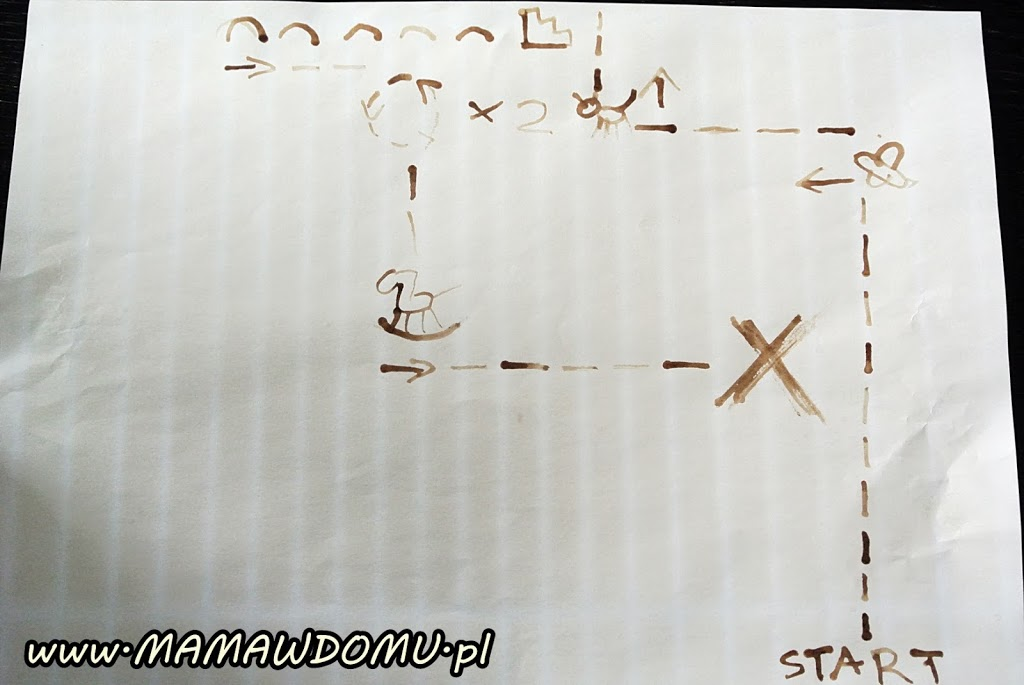 × 2
X
START
www.MAMAWDOMU.pl